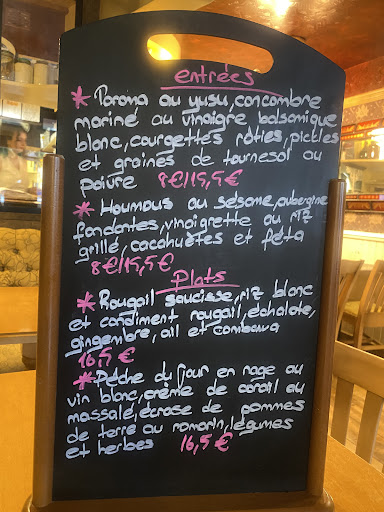 entrées
* Poroma au yusu, concombre
mariné au vinaigre balsamique
blanc, courgettes rôties, pickles
et graines de tournesol au
poivre 8€/15,5€
* Houmous au sésame, aubergine
fondantes, vinaigrette au riz
grillé, cacahuètes et féta
8€/15,5€
Plats
* Rougail saucisse, riz blanc
et condiment rougail, échalote,
gingembre, ail et combava
16,5€
* Pêche du jour en nage au
vin blanc, crème de corail au
massalé, écrasé de pommes
de terre au romarin, légumes
et herbes 16,5€